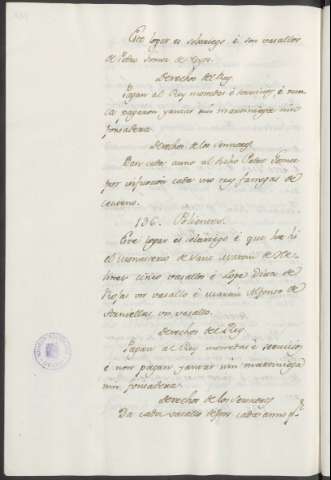 Este logar es solariego è son vasallos
de Pedro Gomez de
Derechos del Rey
Pagan al Rey monedas è servicios, è nun
ca pagaron yantar nin martiniega nin
fonsadera.
Derechos de los Sennores
Dan cada anno al dicho Pedro Gomez
por infurcion cada uno seys fanegas de
centeno.
136. Polienzo.
Este logar es solariego è que ha hi
el Monesterio de
cinco vasallos è Lope Diaz de
Rojas un vasallo è Martin Alfonso de
un vasallo.
Derechos del Rey
Pagan al Rey monedas è servicios,
è non pagan yantar nin martiniega
nin fonsadera.
Derechos de los Sennores
Da cada vasallo cada anno